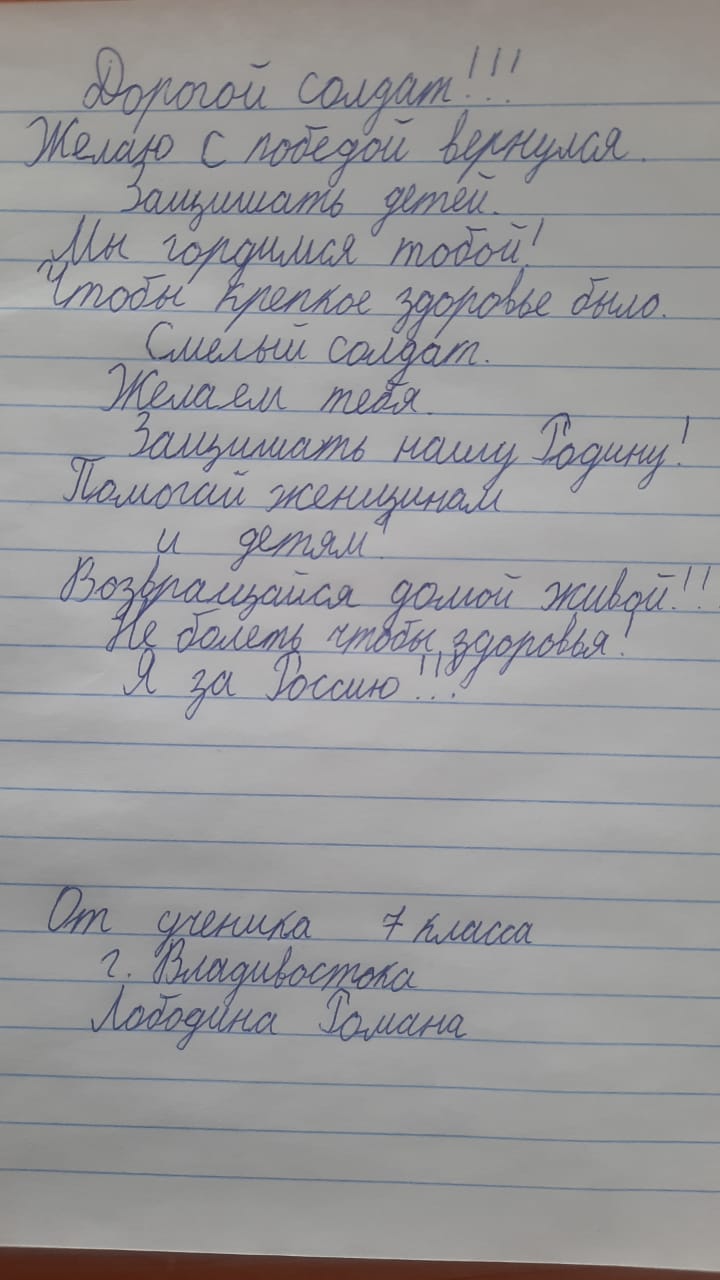 Дорогой солдат!!!
Желаю с победой вернулся.
Защишать детей.
Мы гордимся тобой!
Чтобы крепкое здоровье было.
Смелый солдат.
Желаем тебя.
Защишать нашу Родину!
Помогай женщинам
и детям!
Возвращайся домой живой!!!
Не болеть чтобы здоровья!
Я за Россию!!!
От ученика 7 класса
г. Владивостока
Лободина Романа